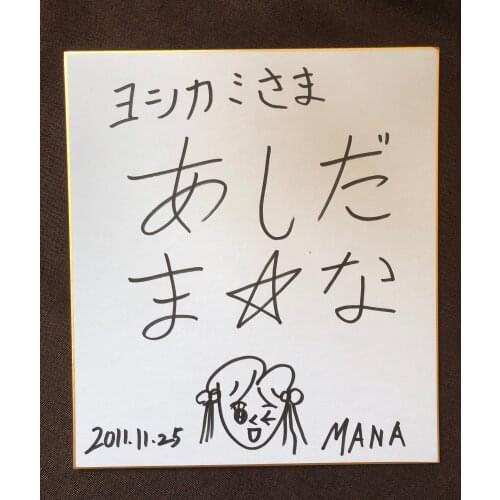 ヨシカミさま
あしだ
ま☆な
2011.11.25 MANA